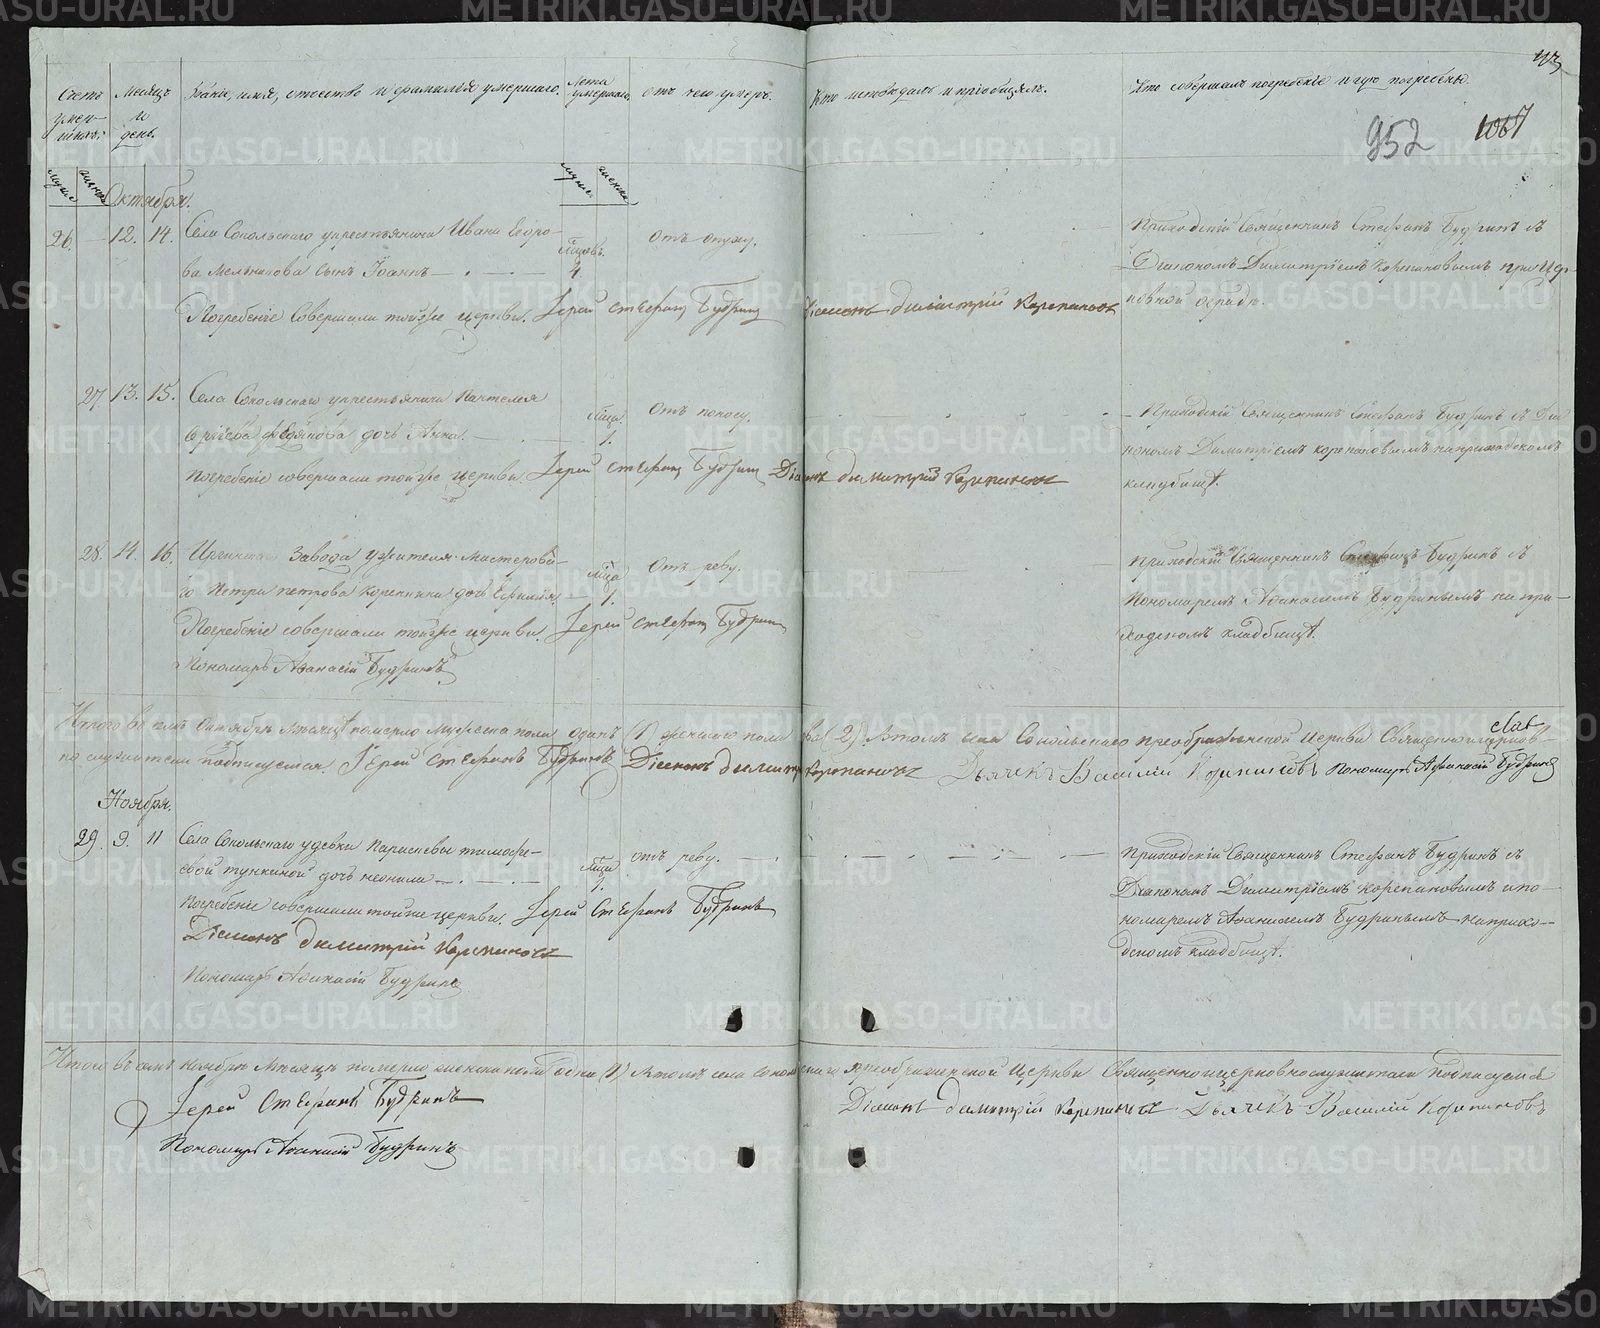 113
952 1067
Счетъ умершихъ.
Месяцъ и день.
Званіе, имя, отчество и фамилія умершаго.
Лета умершаго.
отъ чего умеръ.
Кто исповѣдалъ и приобщалъ.
Кто совершалъ погребеніе и где погребены.
мужеск женска
мужеск женска
Октября.
26. — 12. 14. Села Сокольскаго у крестьянина Ивана
ва Мельникова сынъ Іоаннъ
Мцовъ 4
Отъ опуху.
Приходскій Священникъ Стефанъ Будринъ съ
Діакономъ Димитріемъ Корепановымъ при Цер-
ковной ограде.
Погребеніе совершали тойже церкви. Іерей Стефанъ Будринъ Діаконъ Димитрій Корепановъ
27 13. 15. Села Сокольскаго у крестьянина Пантелея
дочь Анна.
Мца 1.
Отъ поносу.
Приходскій Священникъ Стефанъ Будринъ съ Діа
кономъ Димитріемъ Корепановымъ на приходскомъ
кладбищѣ.
Погребеніе совершали тойже церкви. Іерей Стефанъ Будринъ Діаконъ Димитрій Корепановъ
28. 14. 16. Иргинскаго Завода у жителя Мастерова-
го Петра Петрова дочь
Мца 1.
Отъ реву.
Приходскій Священникъ Стефанъ Будринъ съ
Пономаремъ Афанасіемъ Будринымъ на при-
ходскомъ кладбищѣ.
Погребеніе совершали тойже церкви. Іерей Стефанъ Будринъ
Пономарь Афанасій Будринъ
Итого въ семъ Октябрѣ Мѣсяцѣ померло Мужеска пола одинъ (1) женскаго пола два (2) Въ томъ села Сокольскаго преображенской Церкви Священно и церков-
но служители подписуемся. Іерей Стефанъ Будринъ Діаконъ Димитрій Корепановъ Дьячекъ Василій Корепановъ Пономарь Афанасій Будринъ
Ноября.
29. 9. 11 Села Сокольскаго у девки Парасковьи Тимофе-
евой дочь неонила
Мца 1.
отъ реву.
Приходскій Священникъ Стефанъ Будринъ съ
Діакономъ Димитріемъ Корепановымъ и по-
номаремъ Афанасіемъ Будринымъ на прихо-
дскомъ кладбищѣ.
Погребеніе совершали тойже церкви. Іерей Стефанъ Будринъ
Діаконъ Димитрій Корепановъ
Пономарь Афанасій Будринъ
Итого въ семъ Ноябрѣ Мѣсяцѣ померло женска пола одна (1) Въ томъ села Сокольскаго преображенской Церкви Священноицерковнослужители подписуемся
Іерей Стефанъ Будринъ
Діаконъ Димитрій Корепановъ Дьячекъ Василій Корепановъ
Пономарь Афанасій Будринъ
METRIKI.GASO-URAL.RU